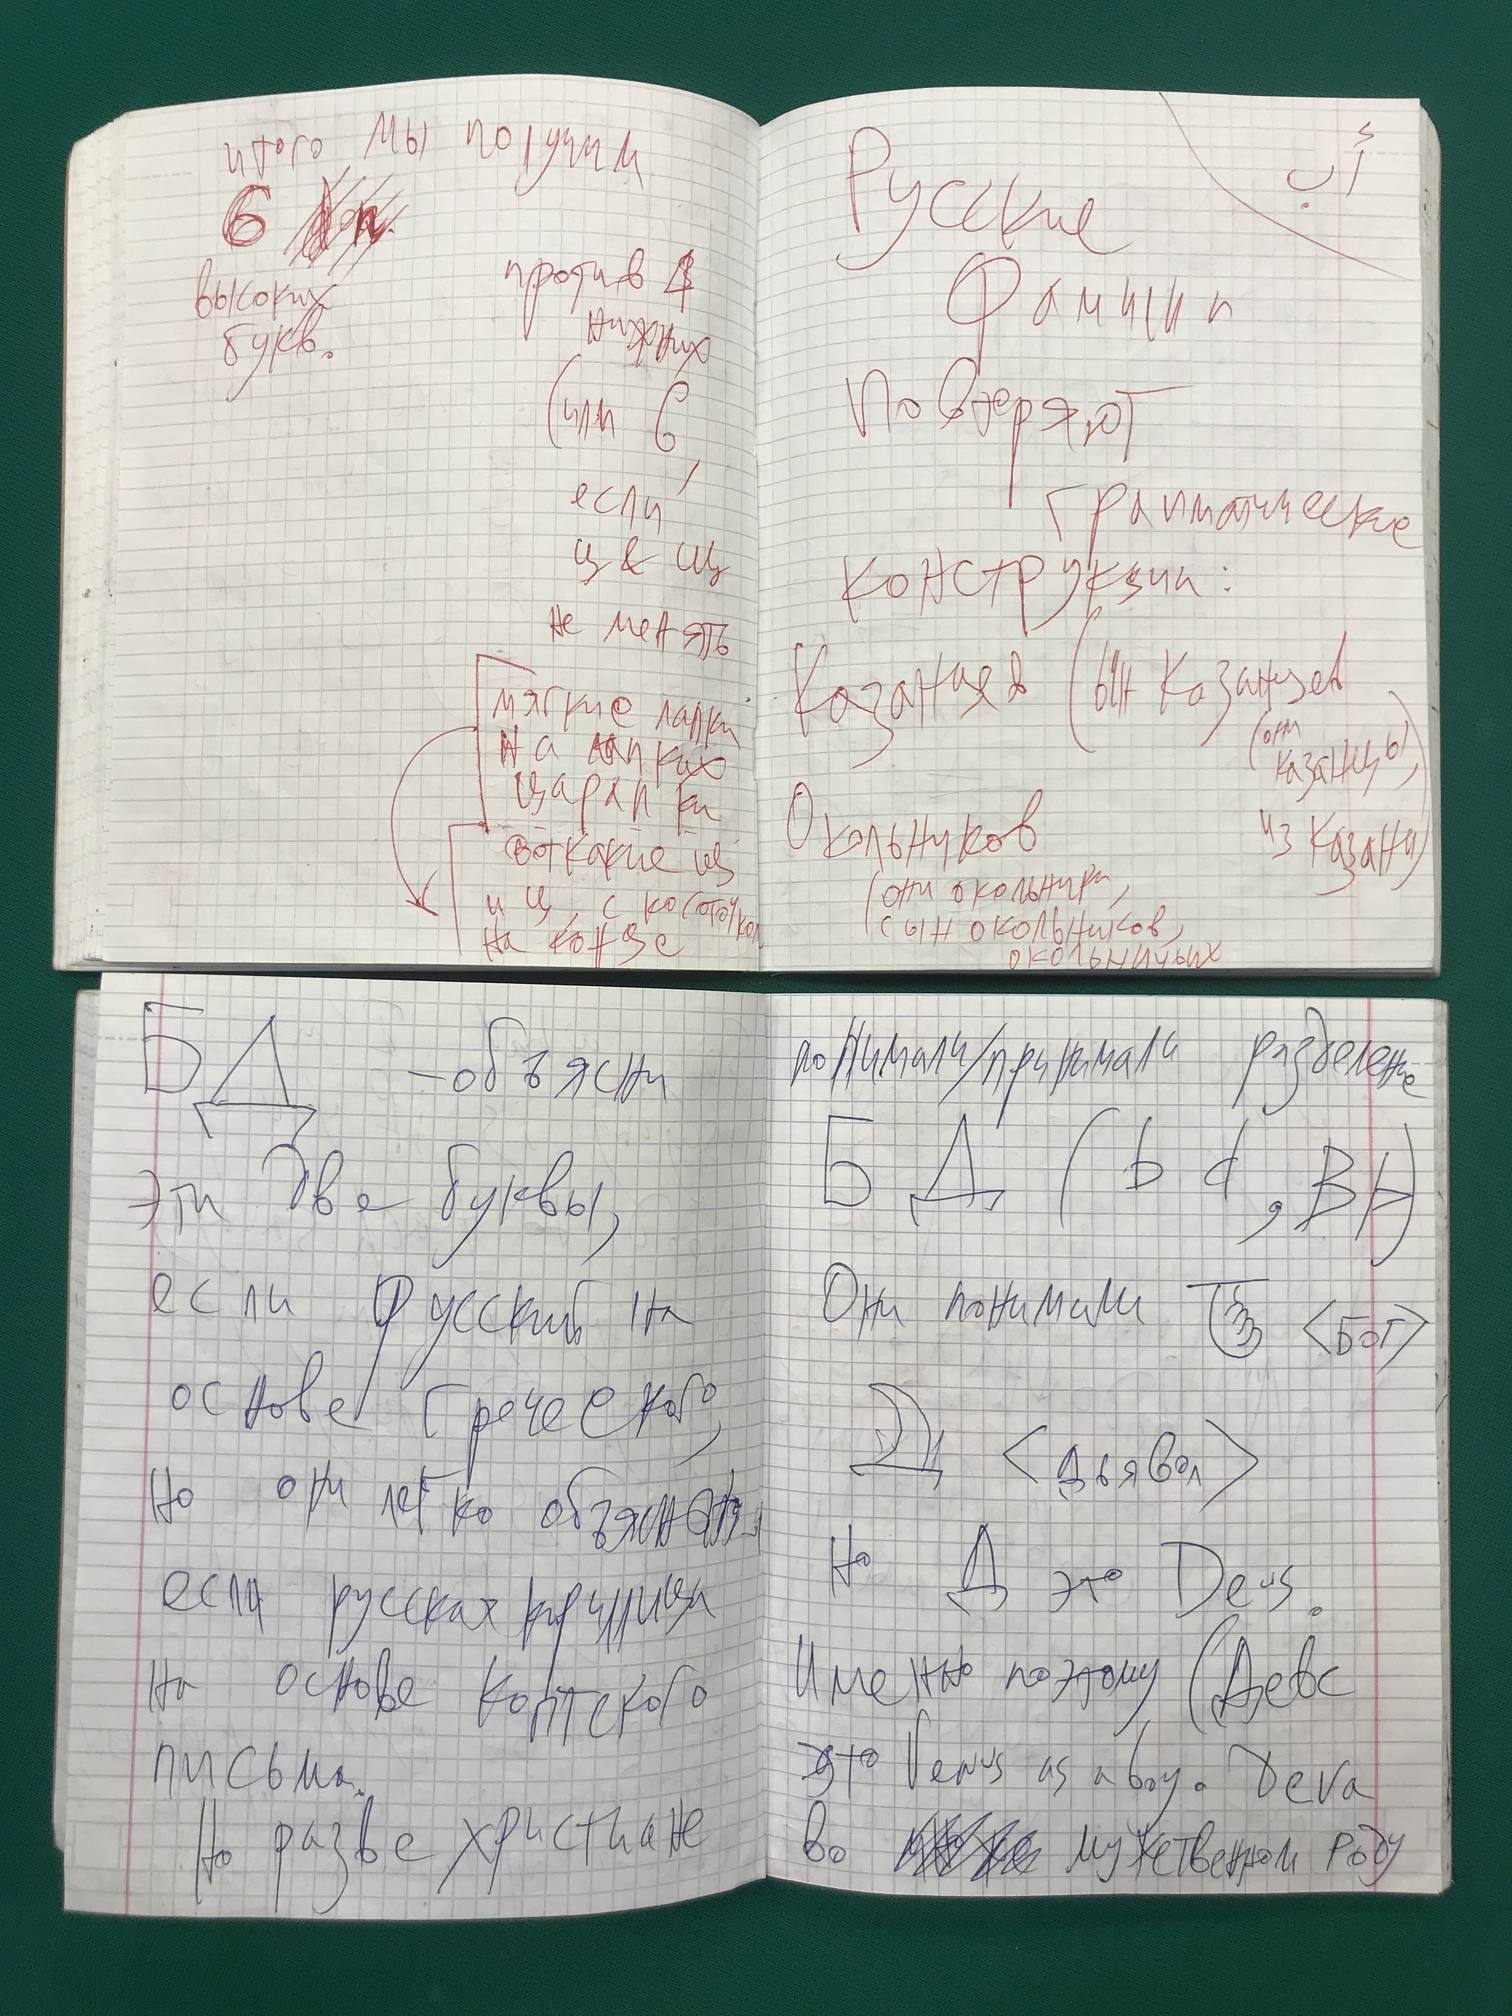 итого мы получим
6
высоких
букв.
против 4
нижних
(или 6,
если
ц & щ
не менять
мягкие лапки
на лапках
царапки
вот какие щ
и ц, с коготочком
на конце
أب
Русские
Фамилии
повторяют
грамматические
конструкции:
Казанцев (сын Казанцев
(они
казанцы),
из Казани)
Окольников
(они окольничи,
сын окольников,
окольничьих
БД - объясни
эти две буквы,
если русский на
основе греческого,
но они легко объяснимы,
если русская кириллица
на основе коптского
письма.
Но разве христиане
понимали/принимали разделение
Б Д (b d, BH)
Они понимали <БОГ>
Д <Дьявол>
Но Д это Deus.
Именно поэтому (Девс
это Venus as a boy. Deva
во мужественном роду